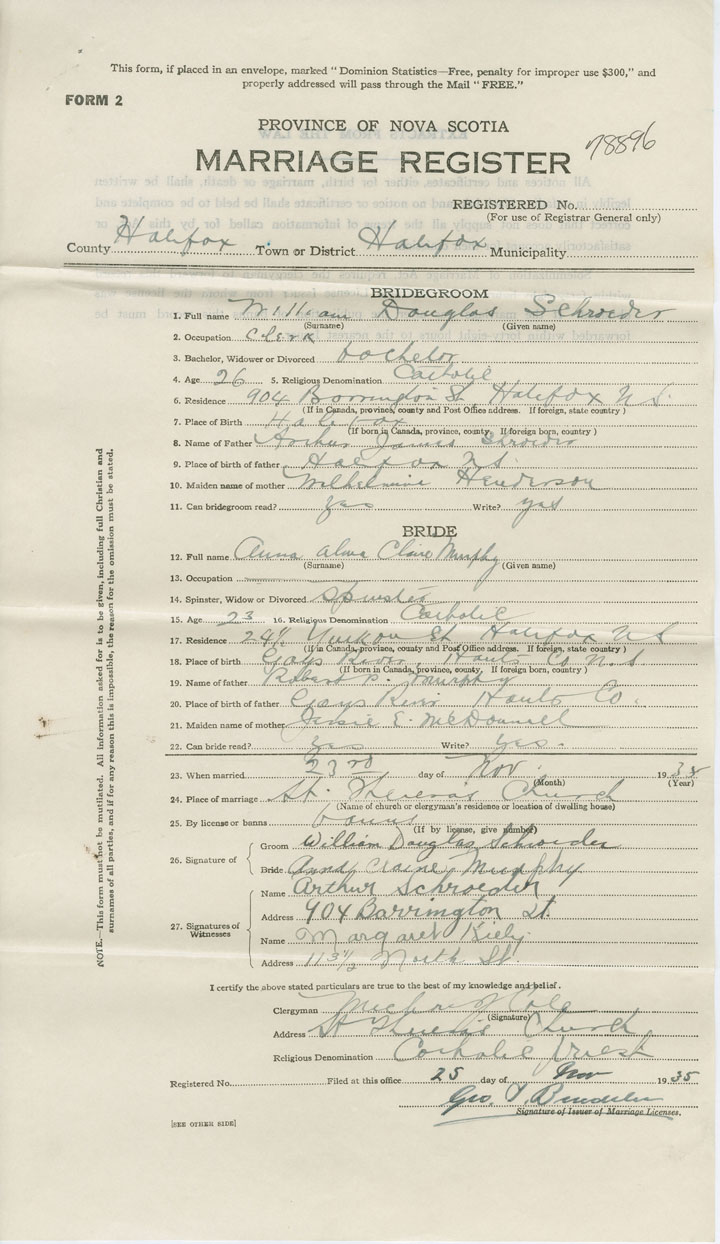 This form, if placed in an envelope, marked "Dominion Statistics—Free, penalty for improper use $300," and
properly addressed will pass through the Mail "FREE."
FORM 2
PROVINCE OF NOVA SCOTIA
78896
MARRIAGE REGISTER
REGISTERED No.
(For use of Registrar General only)
County Halifax Town or District Halifax Municipality
BRIDEGROOM
1. Full name William Douglas Schroeder
(Surname) (Given name)
2. Occupation Clerk
3. Bachelor, Widower or Divorced bachelor
4. Age 26 5. Religious Denomination Catholic
6. Residence 904 Barrington St Halifax N.S.
(If in Canada, province, county and Post Office address. If foreign, state country)
7. Place of Birth Halifax
(If born in Canada, province, county. If foreign born, country)
8. Name of Father Arthur James Schroeder
9. Place of birth of father Halifax N.S.
10. Maiden name of mother Wilhelmine Henderson
11. Can bridegroom read? yes Write? yes
BRIDE
12. Full name Anna Alma Claire Murphy
(Surname) (Given name)
13. Occupation
14. Spinster, Widow or Divorced Spinster
15. Age 23 16. Religious Denomination Catholic
17. Residence Yukon St Halifax N S
(If in Canada, province, county and Post Office address. If foreign, state country)
18. Place of birth Gays River, Hants Co N.S
(If born in Canada, province, county. If foreign born, country)
19. Name of father Robert P. Murphy
20. Place of birth of father Gays River Hants Co.
21. Maiden name of mother Jessie E. McDonnell
22. Can bride read? Yes Write? Yes.
23. When married 23rd day of Nov. 1935
(Month) (Year)
24. Place of marriage St. Theresa's Church
(Name of church or clergyman's residence or location of dwelling house)
25. By license or banns banns
(If by license, give number)
26. Signature of
Groom William Douglas Schroeder
Bride Anna Claire Murphy
27. Signatures of Witnesses
Name Arthur Schroeder
Address 904 Barrington St.
Name Margaret Kiely
Address 113½ North St.
I certify the above stated particulars are true to the best of my knowledge and belief.
Clergyman Cole
(Signature)
Address St Theresa's Church
Religious Denomination Catholic Priest
Registered No. Filed at this office 25 day of Nov 1935
Geo.
Signature of Issuer of Marriage Licenses.
[SEE OTHER SIDE]
NOTE.—This form must not be mutilated. All information asked for is to be given, including full Christian and
surnames of all parties, and if for any reason this is impossible, the reason for the omission must be stated.